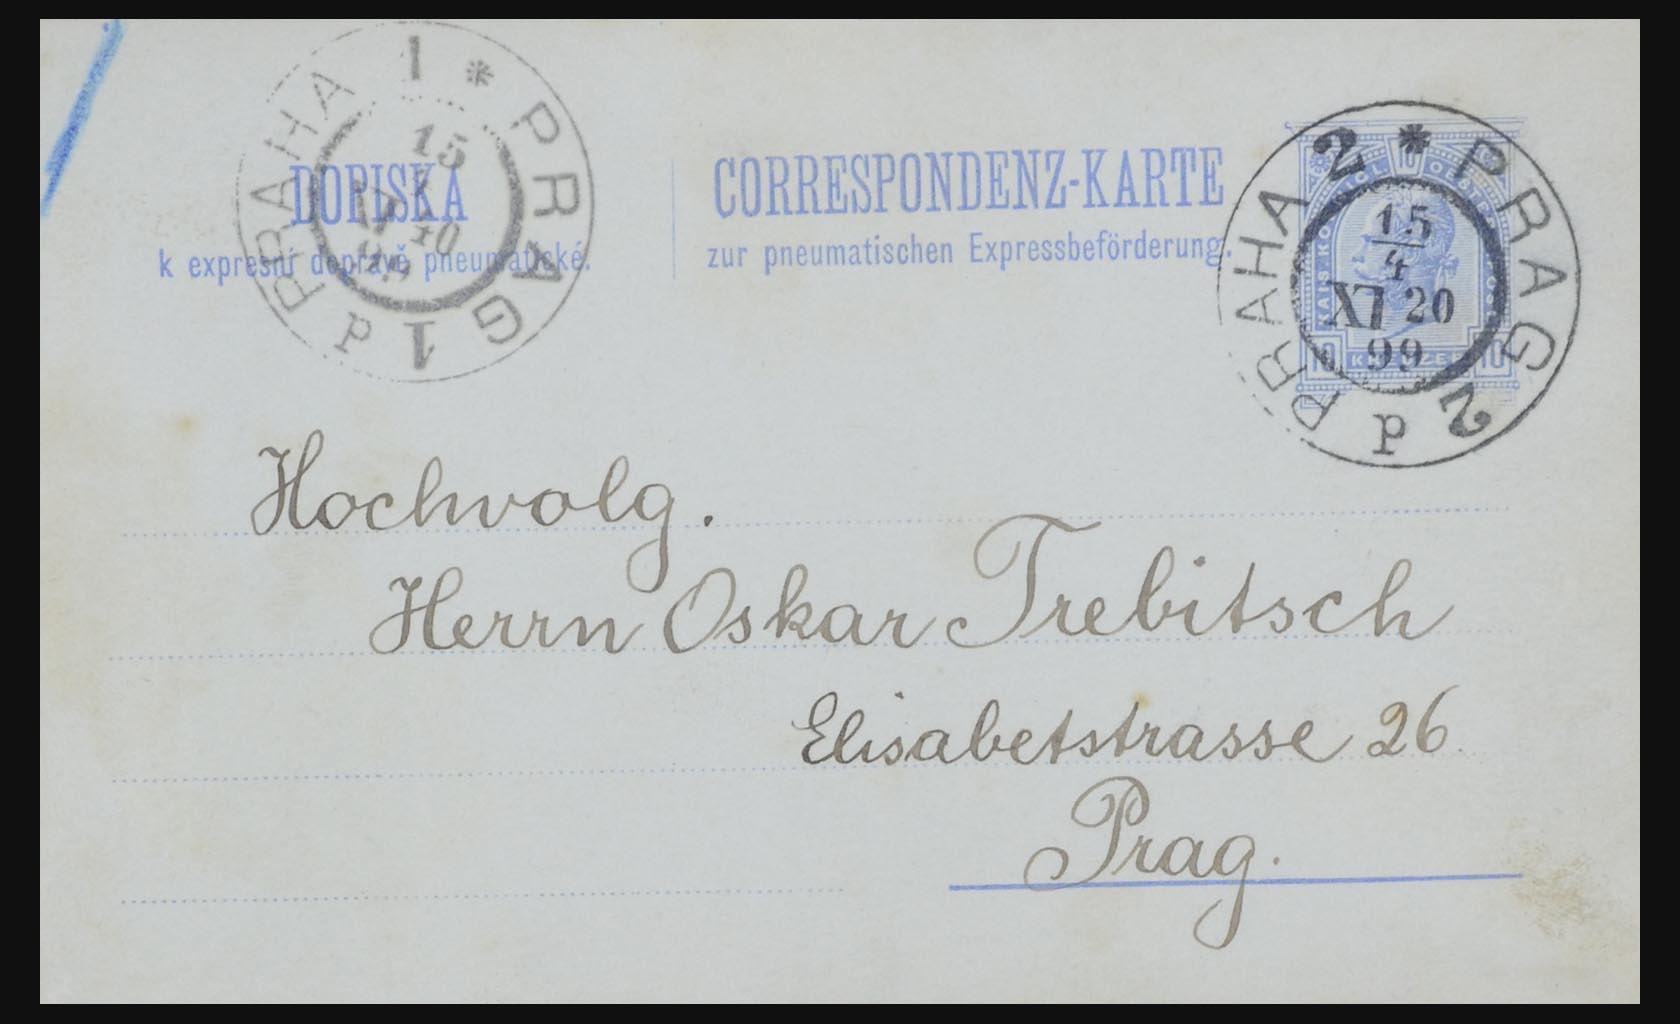 PRAHA 1 * PRAG 1
15
40
DOPISKA
k expresní dopravě pneumatické.
CORRESPONDENZ-KARTE
zur pneumatischen Expressbeförderung.
PRAHA 2 * PRAG 2
15
4
XI 20
99
p
10
KAIS. KÖNIGL. OESTR. POST
10 KREUZER 10
Hochwolg.
Herrn Oskar Trebitsch
Elisabetstrasse 26
Prag.